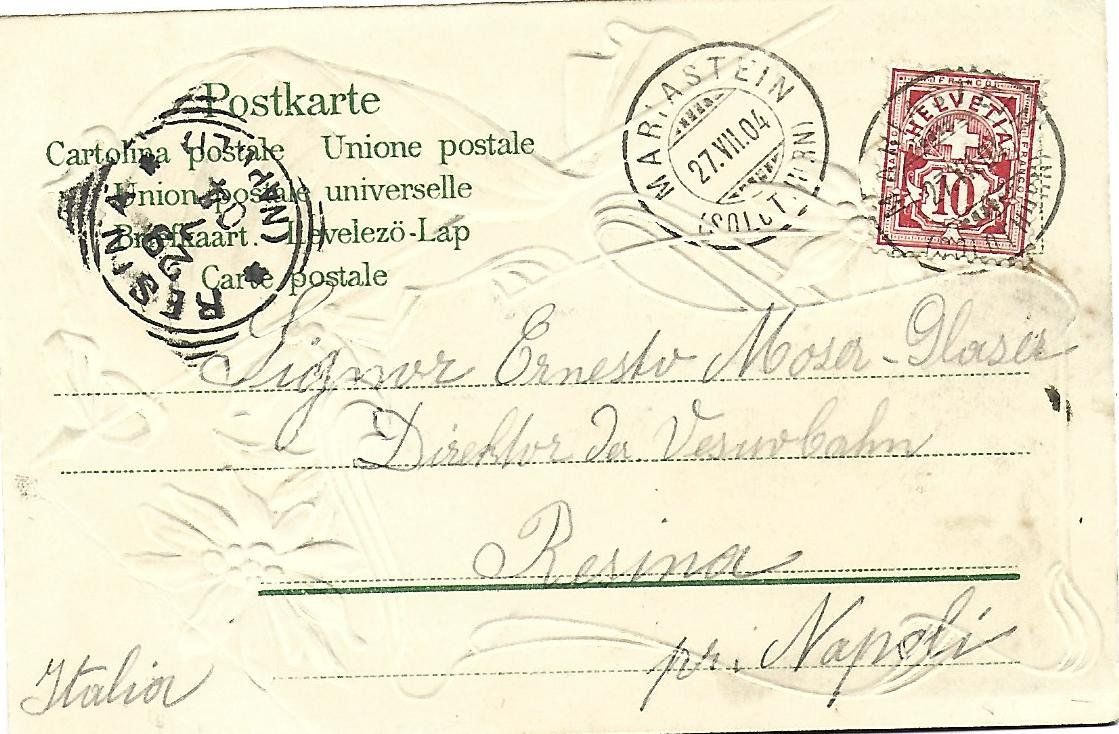 Postkarte
Cartolina postale Unione postale
Union postale universelle
Briefkaart. Levelezö-Lap
Carte postale
RESINA (NAPOLI)
MARIASTEIN (SOLOTHURN)
27.VII.04
FRANCO
HELVETIA
FRANCO FRANCO
10
Signor Ernesto Moser-Glaser
Direktor der Vesuvbahn
Resina
pr. Napoli
Italia